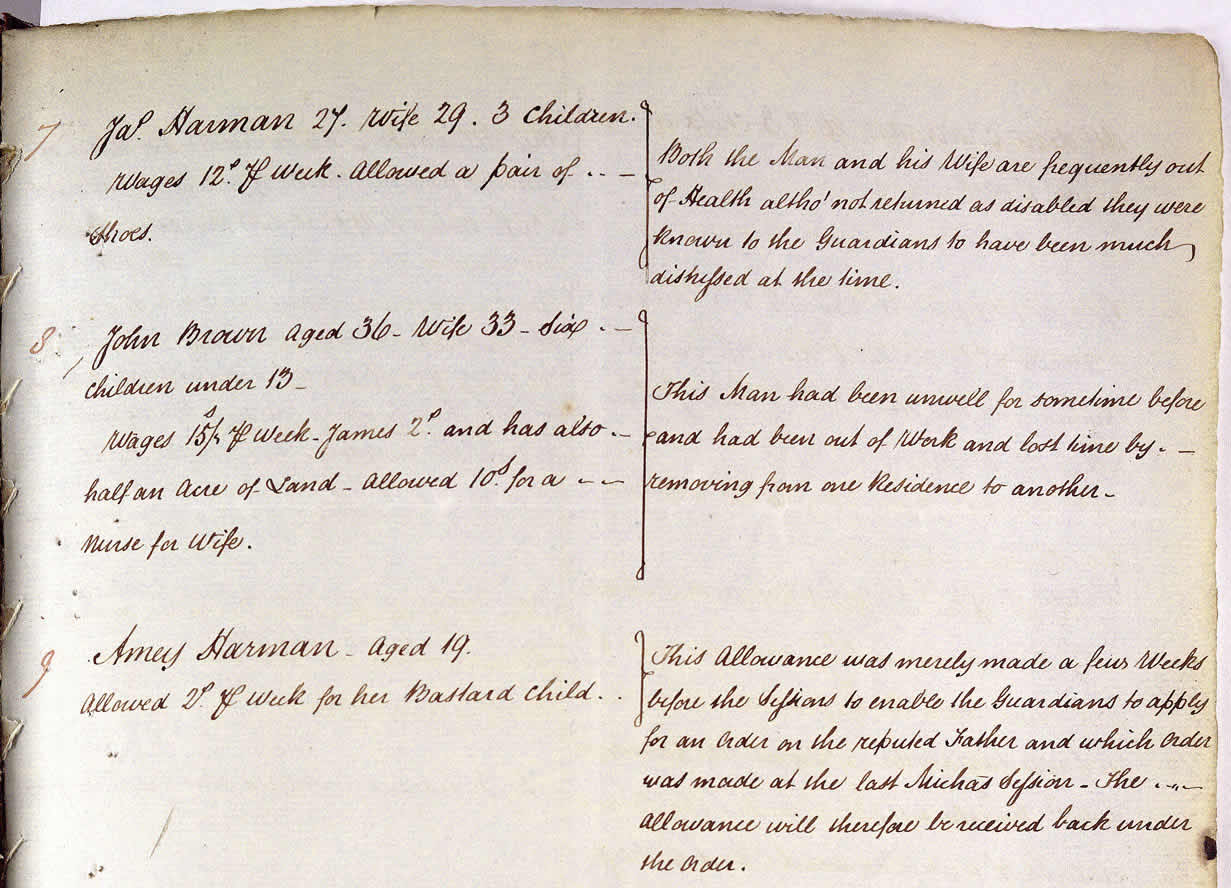 7 Jas. Harman 27. Wife 29. 3 Children.
Wages 12s. ⅌ Week. Allowed a pair of
Shoes.
Both the Man and his Wife are frequently out
of Health altho' not returned as disabled they were
known to the Guardians to have been much
distressed at the time.
8 John Brown aged 36 - Wife 33 - Six
Children under 13 -
Wages 15s/ ⅌ Week - James 2s. and has also
half an Acre of Land - Allowed 10s. for a
Nurse for Wife.
This Man had been unwell for sometime before
and had been out of Work and lost time by
removing from one Residence to another -
9 Amey Harman - Aged 19.
Allowed 2s. ⅌ Week for her Bastard Child.
This Allowance was merely made a few Weeks
before the Sessions to enable the Guardians to apply
for an Order on the reputed Father and which Order
was made at the last Michas Session - The
allowance will therefore be received back under
the Order.